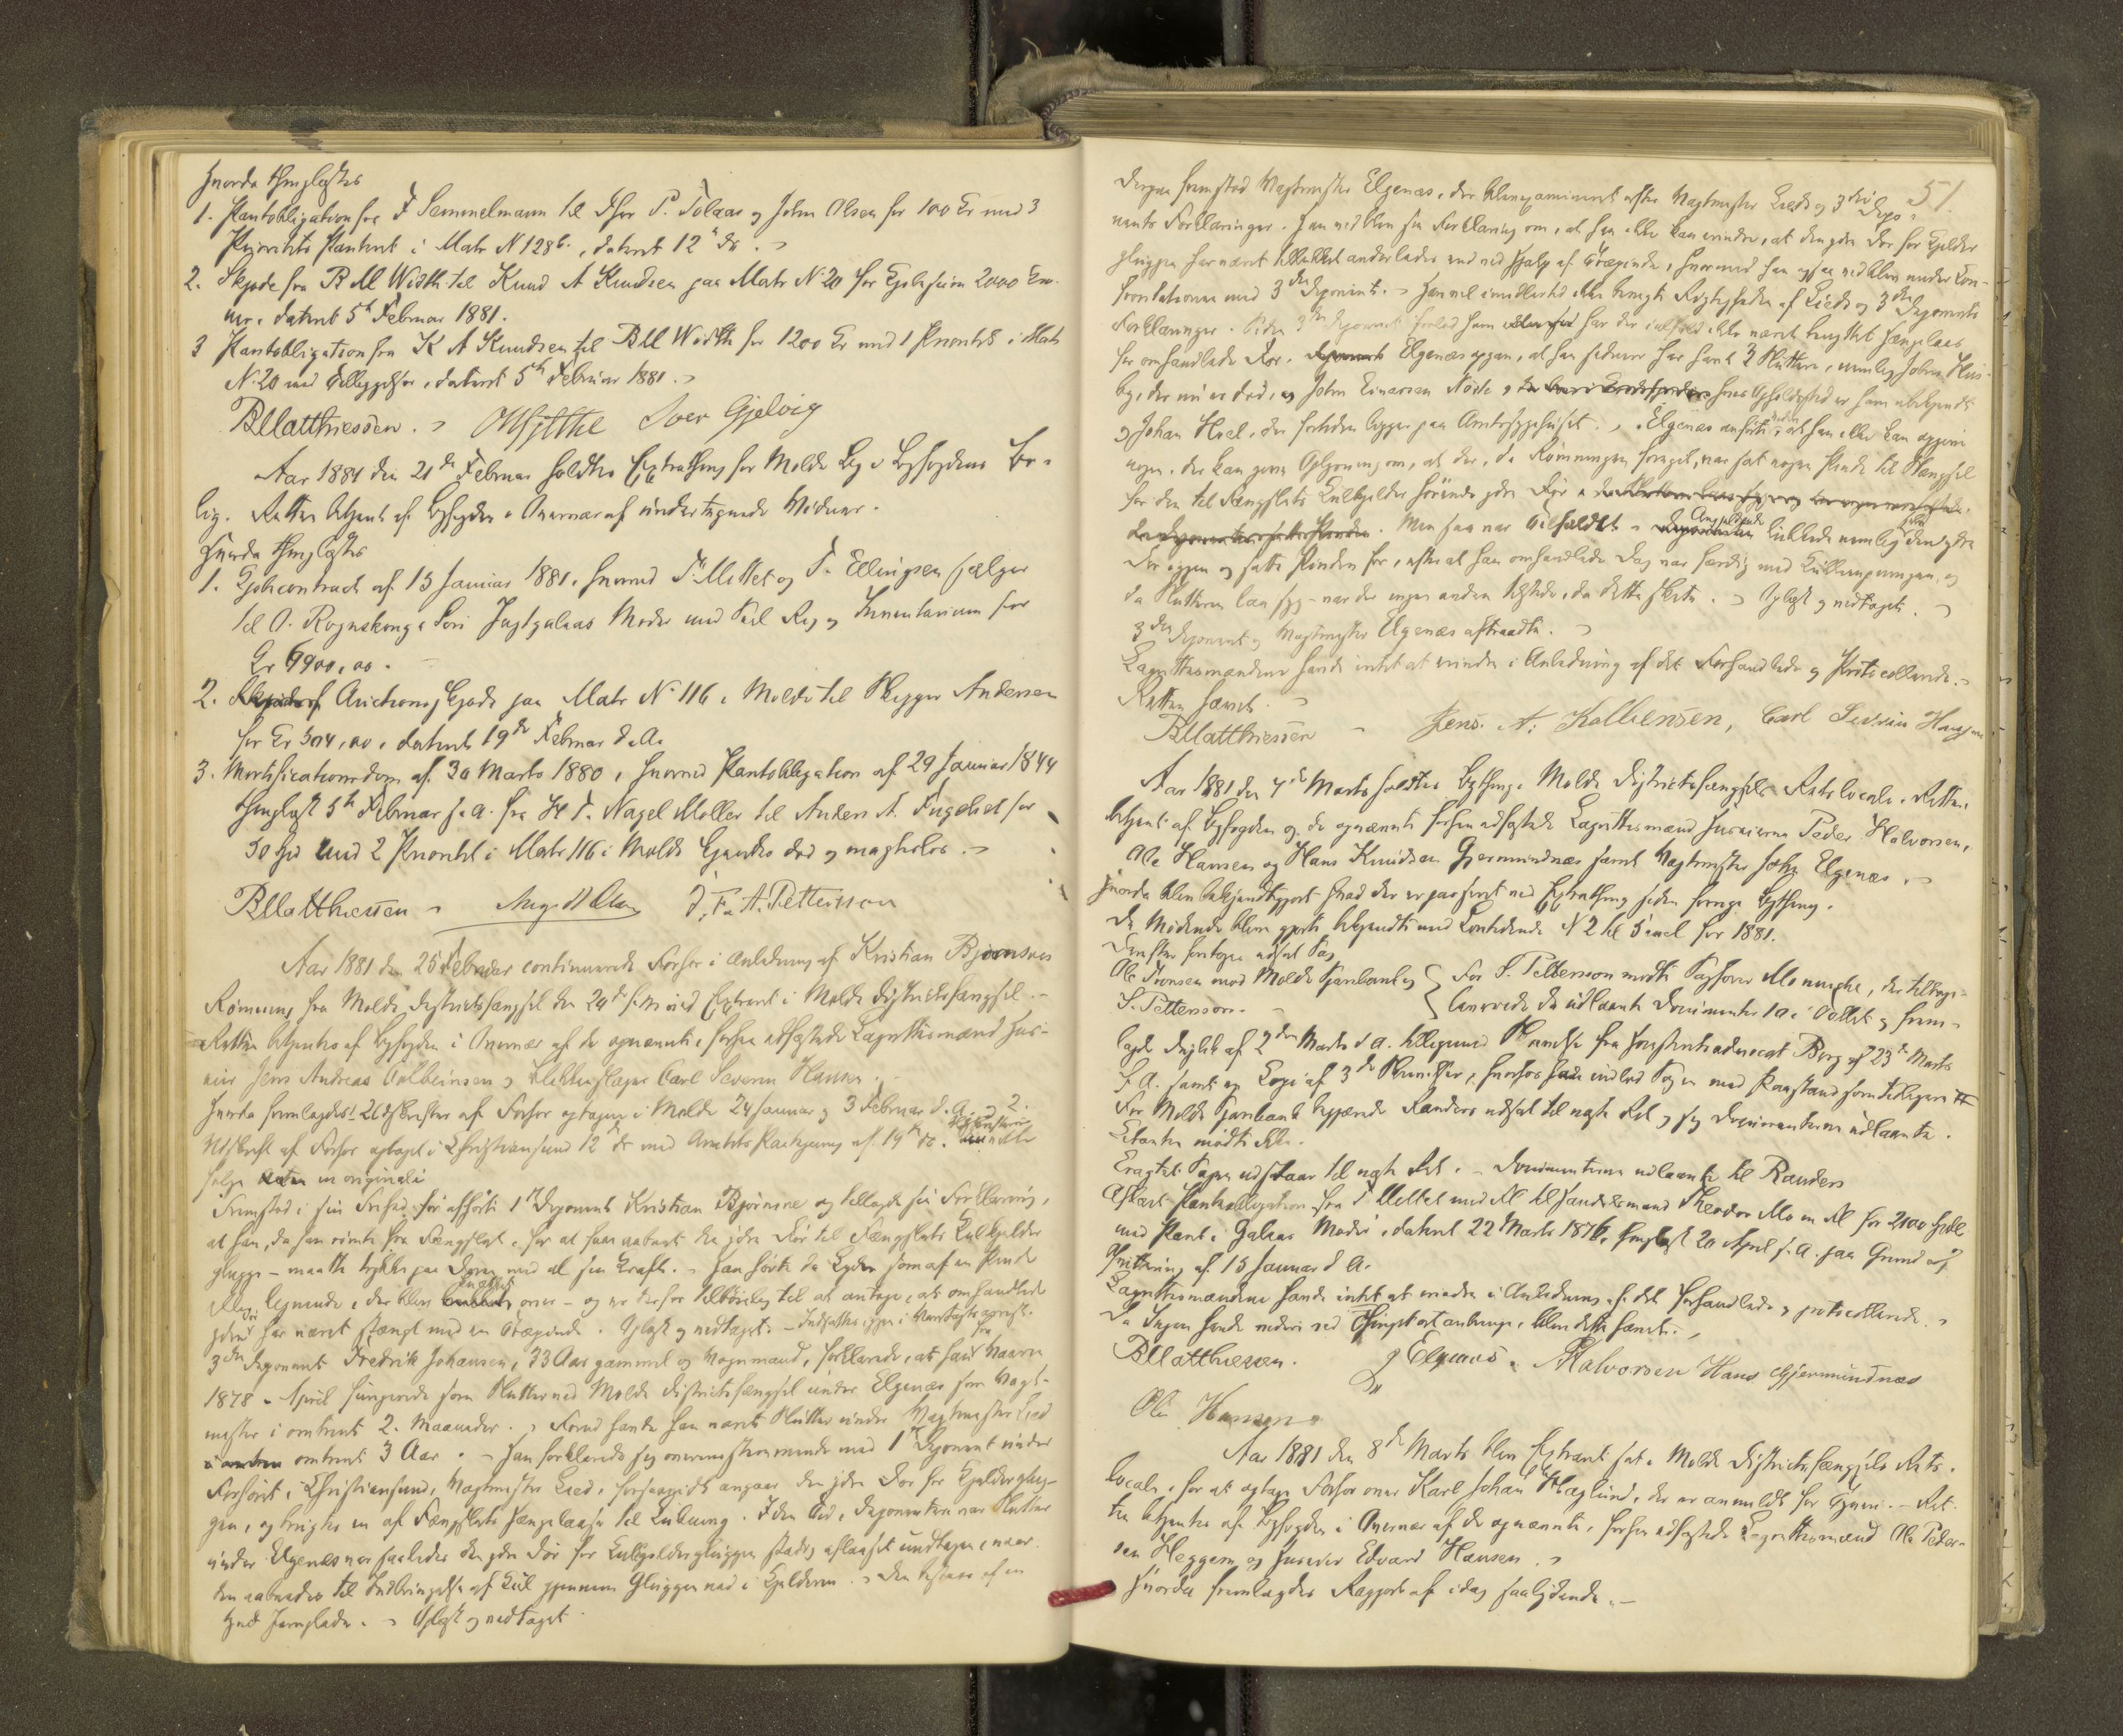 hvorda thinglæstes
1. Pantobligation fra F Semmelmann til Thor P. Tolaas og John Olsen for 100 Kr med 3
Prioritets Panteret i Matr N 128b., dateret 12te ds.
2. Skjøde fra B M Width til Knud A Knudsen paa Matr No 20 for Kjøbesum 2000 Kro-
ner. dateret 5te Februar 1881.
3 Pantobligation fra K A Knudsen til B M Width for 1200 Kr med 1 Prioritet i Matr
N. 20 med Tilbyggelser, dateret 5te Februar 1881.
B Matthiessen. Iver Gjelvig
Aar 1881 den 21de Februar holdtes Extrathing for Molde By i Byfogdens Bo-
lig. Retten betjent af Byfogden i Overvær af undertegnede Vidner.
Hvorda thinglæstes
1. Kjøbecontract af 15 Januar 1881, hvorved P. Mittet og T. Ellingsen sælger
til O. Rognskoug a Søn Jagtgaleas Modes med Seil Rig og Inventarium for
Kr 6900,00.
2. Auctionsskjøde paa Matr No 116 i Molde til Skipper Andersen
for Kr 504,00, dateret 19de Februar d. A.
3. Mortificationsdom af 30 Marts 1880, hvorved Pantobligation af 29 Januar 1844
thinglæst 5te Februar s. A. fra H T. Nagel Møller til Anders A. Fugelset for
50 Spd med 2 Prioritet i Matr 116 i Molde kjendes død og magtesløs.
B Matthiessen F. A. Pettersson
Aar 1881 den 25 Februar continueredes Forhør i Anledning af Kristian Bjørnsens
Rømning fra Molde Districtsfængsel den 20de f. M. ved Extraret i Molde Districtsfængsel.
Retten betjentes af Byfogden i Overvær af de opnævnte, forhen edfæstede Lagrettesmænd Hus-
eier Jens Andreas Kolbeinsen og Blikkenslager Carl Severin Hansen.
Hvorda fremlagdes: Udskrifter af Forhør optagne i Molde 24 Januar og 3 Februar d. A. 2.
Udskrift af Forhør optaget i Christiansund 12te ds med Amtets Paategning af 19de ds.
følge Acten in originali
Fremstod i sin Frihed før afhørte 1ste Deponent Kristian Bjørnsen og tillagde sin Forklaring,
at han, da han rømte fra Fængslet, for at faae aabnet den ydre Dør til Fængslets Kulkjelder
glugge - maatte trykke paa Døren med al sin Kraft. Han hørte da Lyden som af en Pind
eller lignende, der blev knækket over - og er derfor tilbøielig til at antage, at omhandlede
ydre Dør har været stængt med en Træpinde. Oplæst og vedtaget. - Indsattes igjen i Varetægtsarrest.
3die Deponent Fredrik Johansen, 33 Aar gammel og Vognmand, forklarede, at han fra Vaaren
1878 - April fungerede som Slutter ved Molde Districtsfængsel under Elgenæs som Vagt-
mester i omtrent 2 Maaneder. Forud havde han været Slutter under Vagtmester Lied
omtrent 3 Aar. - Han forklarede sig overensstemmende med 1ste Deponent under
Forhøret i Christiansund, Vagtmester Lied, forsaavidt angaar den ydre Dør for Kjelderglug-
gen, og brugtes en af Fængslets Hængelaase til Lukning. I den Tid, Deponenten var Slutter
under Elgenæs var saaledes den ydre Dør for Kulkjeldergluggen stadig aflaaset undtagen, naar
den aabnedes til Indbringelse af Kul gjennem Gluggen ned i Kjelderen. Den bestaar af en
tynd Jernplade. Oplæst og vedtaget.
51.
Derpaa fremstod Vagtmester Elgenæs, der blev examineret efter Vagtmester Lieds og 3die Depo-
nents Forklaringer. Han vedblev sin Forklaring om, at han ikke kan erindre, at den ydre Dør for Kjelder
gluggen har været tillukket anderledes end ved Hjælp af Træpinde, hvorved han ogsaa vedblev under Con-
frontationen med 3die Deponent. Han vil imidlertid ikke benegte Rigtigheden af Lieds og 3die Deponents
Forklaringer. Siden 3die Deponent forlod ham har der ialfald ikke været benyttet Hængelaas
for omhandlede Dør. Elgenæs opgav, at han sidenere har havt 3 Sluttere, nemlig John Hus-
by, der nu er død, og John Einarsen Nøste, hvis Opholdssted er ham ubekjendt
og Johan Hoel, der fortiden ligger paa Amtssygehuset. Elgenæs anførte videre, at han ikke kan opgive
nogen, der kan give Oplysning om, at der, da Rømningen foregik, var sat nogen Pinde til Stængsel
for den til Fængslets Kulkjelder førende ydre Dør
Men saa var Tilfældet - Angjældende lukkede nemlig selv den ydre
Dør igjen og satte Pinden for, efter at han omhandlede Dag var færdig med Kullempningen, og
da Slutteren laa syg - var der ingen anden tilstede, da dette skete. Oplæst og vedtaget.
3die Deponent og Vagtmester Elgenæs aftraadte.
Lagrettesmændene havde intet at erindre i Anledning af det Forhandlede og Protocollerede.
Retten hævet.
B Matthiessen - Jens. A. Kolbensen, Carl Severin Hansen
Aar 1881 den 7de Marts holdtes Bything i Molde Districtsfængsels Retslocale. Retten
betjent af Byfogden og de opnævnte forhen edfæstede Lagrettesmænd Huseierne Peder Halvorsen,
Ole Hansen og Hans Knudsen Gjermundnæs samt Vagtmester John Elgenæs.
Hvorda blev bekjendtgjort hvad der er passeret ved Extrathing siden forrige Bything.
De Mødende bleve gjorte bekjendte med Lovtidende N 2 til 5 incl for 1881.
Derefter foretoges udsat Sag
Ole Tronsen mod Molde Sparebank og S. Pettersson. - For S. Pettersson mødte Sagfører Monrad, der tilbage-
leverede de udlaante Documenter 10 i Tallet og frem-
lagde Indlæg af 2den Marts d. A. tilligemed Skrivelse fra Høiesteretsadvocat Berg af 23de Marts
f. A. samt en Copi af 3de Skrivelser, hvorfor han indlod Sagen med Paastand som tidligere
For Molde Sparebank begjærede Randers udsat til næste Ret og sig Documenterne udlaante.
Citanten mødte ikke.
Eragtet: Sagen udstaar til næste Ret. - Documenterne udlaantes til Randers
Aflæst Pantobligation fra P Mittet med Fl til Handelsmand Theodor Moe m Fl for 2100 Spdl
med Pant i Galeas Modes, dateret 22 Marts 1876, thinglæst 20 April s. A. paa Grund af
Qvittering af 15 Januar d A.
Lagrettesmændene havde intet at erindre i Anledning af det forhandlede og protocollerede.
Da Ingen havde videre ved Thinget at anbringe, blev dette hævet.
B Matthiessen. J Elgenæs. P Halvorsen Hans Gjermundnæs
Ole Hansen
Aar 1881 den 8de Marts blev Extraret sat i Molde Districtsfængsels Rets-
locale, for at optage Forhør over Karl Johan Haglund, der er anmeldt for Tyveri. - Ret-
ten betjentes af Byfogden i Overvær af de opnævnte, forhen edfæstede Lagrettesmænd Ole Peder-
sen Heggem og Huseier Edvard Hansen.
Hvorda fremlagdes Rapport af idag saalydende. -